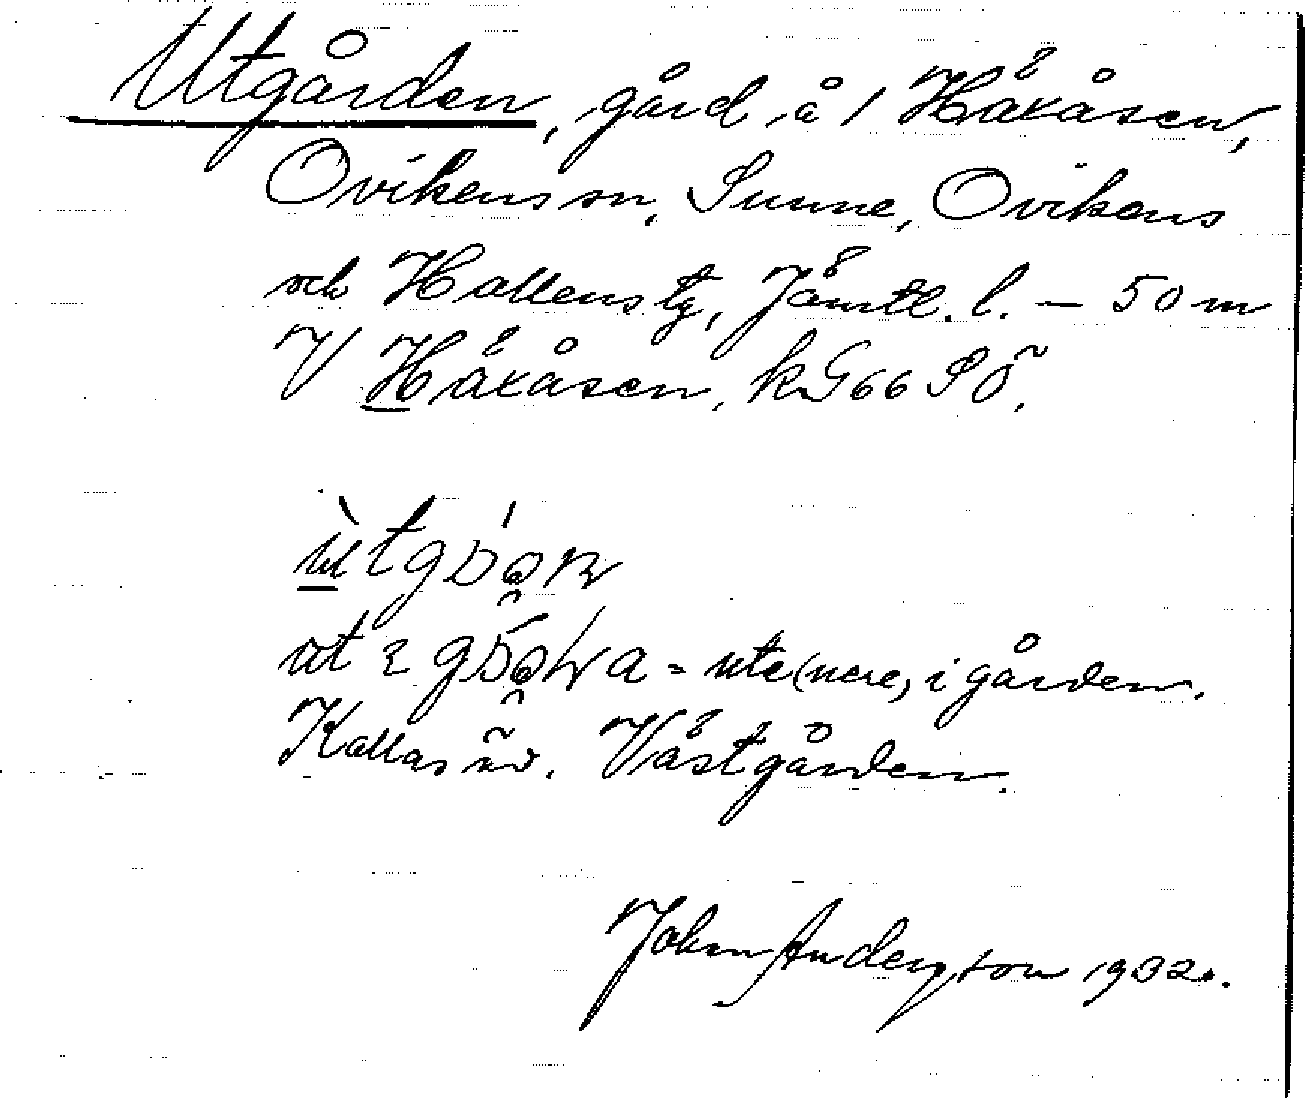 Utgården, gård å 1 Håkåsen,
Ovikens sn, Sunne, Ovikens
och Hallens tg, Jämtl. l. — 50 m
V/ Håkåsen, kG66 SÖ.
= ute (nere) i gården.
Kallas äv. Västgården.
John Anderson 1932.